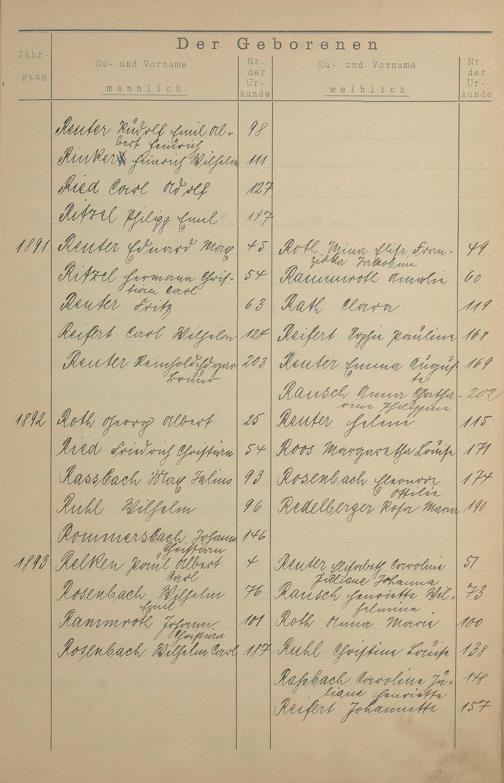 Der Geborenen
Jahr-
gang
Zu- und Vorname
männlich
Nr.
der
Ur-
kunde
Zu- und Vorname
weiblich
Nr
der
Ur-
kunde
Reuter Rudolf Emil Al- 98
bert Heinrich
Rinker Heinrich Wilhelm 111
Ried Carl Adolf 127
Ritzel Philipp Emil 147
1891 Reuter Eduard Max 45 Roth Mina Elise Fran- 49
ziska Jakobine
Ritzel Hermann Chris- 54 Rammroth Amalie 60
tian Carl
Reuter Fritz 63 Rath Clara 119
Reifert Carl Wilhelm 124 Reifert Sophie Pauline 168
Reuter Reinhold Edgar 203 Reuter Emma Augus- 169
Bruno te
Rausch Anna Catha- 202
rine Philippine
1892 Roth Georg Albert 25 Reuter Helene 115
Ried Friedrich Christian 54 Roos Margaretha Louise 171
Rassbach Max Julius 93 Rosenbach Eleonore 174
Ottilie
Ruhl Wilhelm 96 Redelberger Rosa Maria 190
Rommersbach Johann 146
Christian
1893 Relken Paul Albert 4 Reuter Elisabeth Caroline 51
Carl Juliane Johanna
Rosenbach Wilhelm 76 Rausch Henriette Wil- 73
Emil helmine
Rammroth Johann 101 Roth Anna Marie 100
Christian
Rosenbach Wilhelm Carl 187 Ruhl Christine Louise 138
Rassbach Caroline Ju- 148
liane Henriette
Reifert Johannette 157